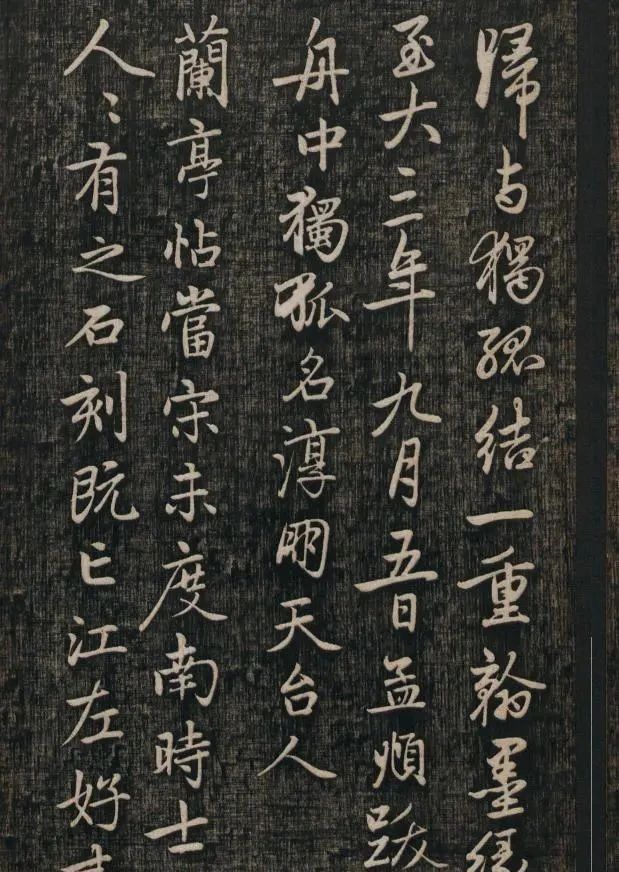 歸与獨孤結一重翰墨緣
至大三年九月五日孟頫跋
舟中獨孤名淳朋天台人
蘭亭帖當宋未度南時士
人〻有之石刻既亡江左好